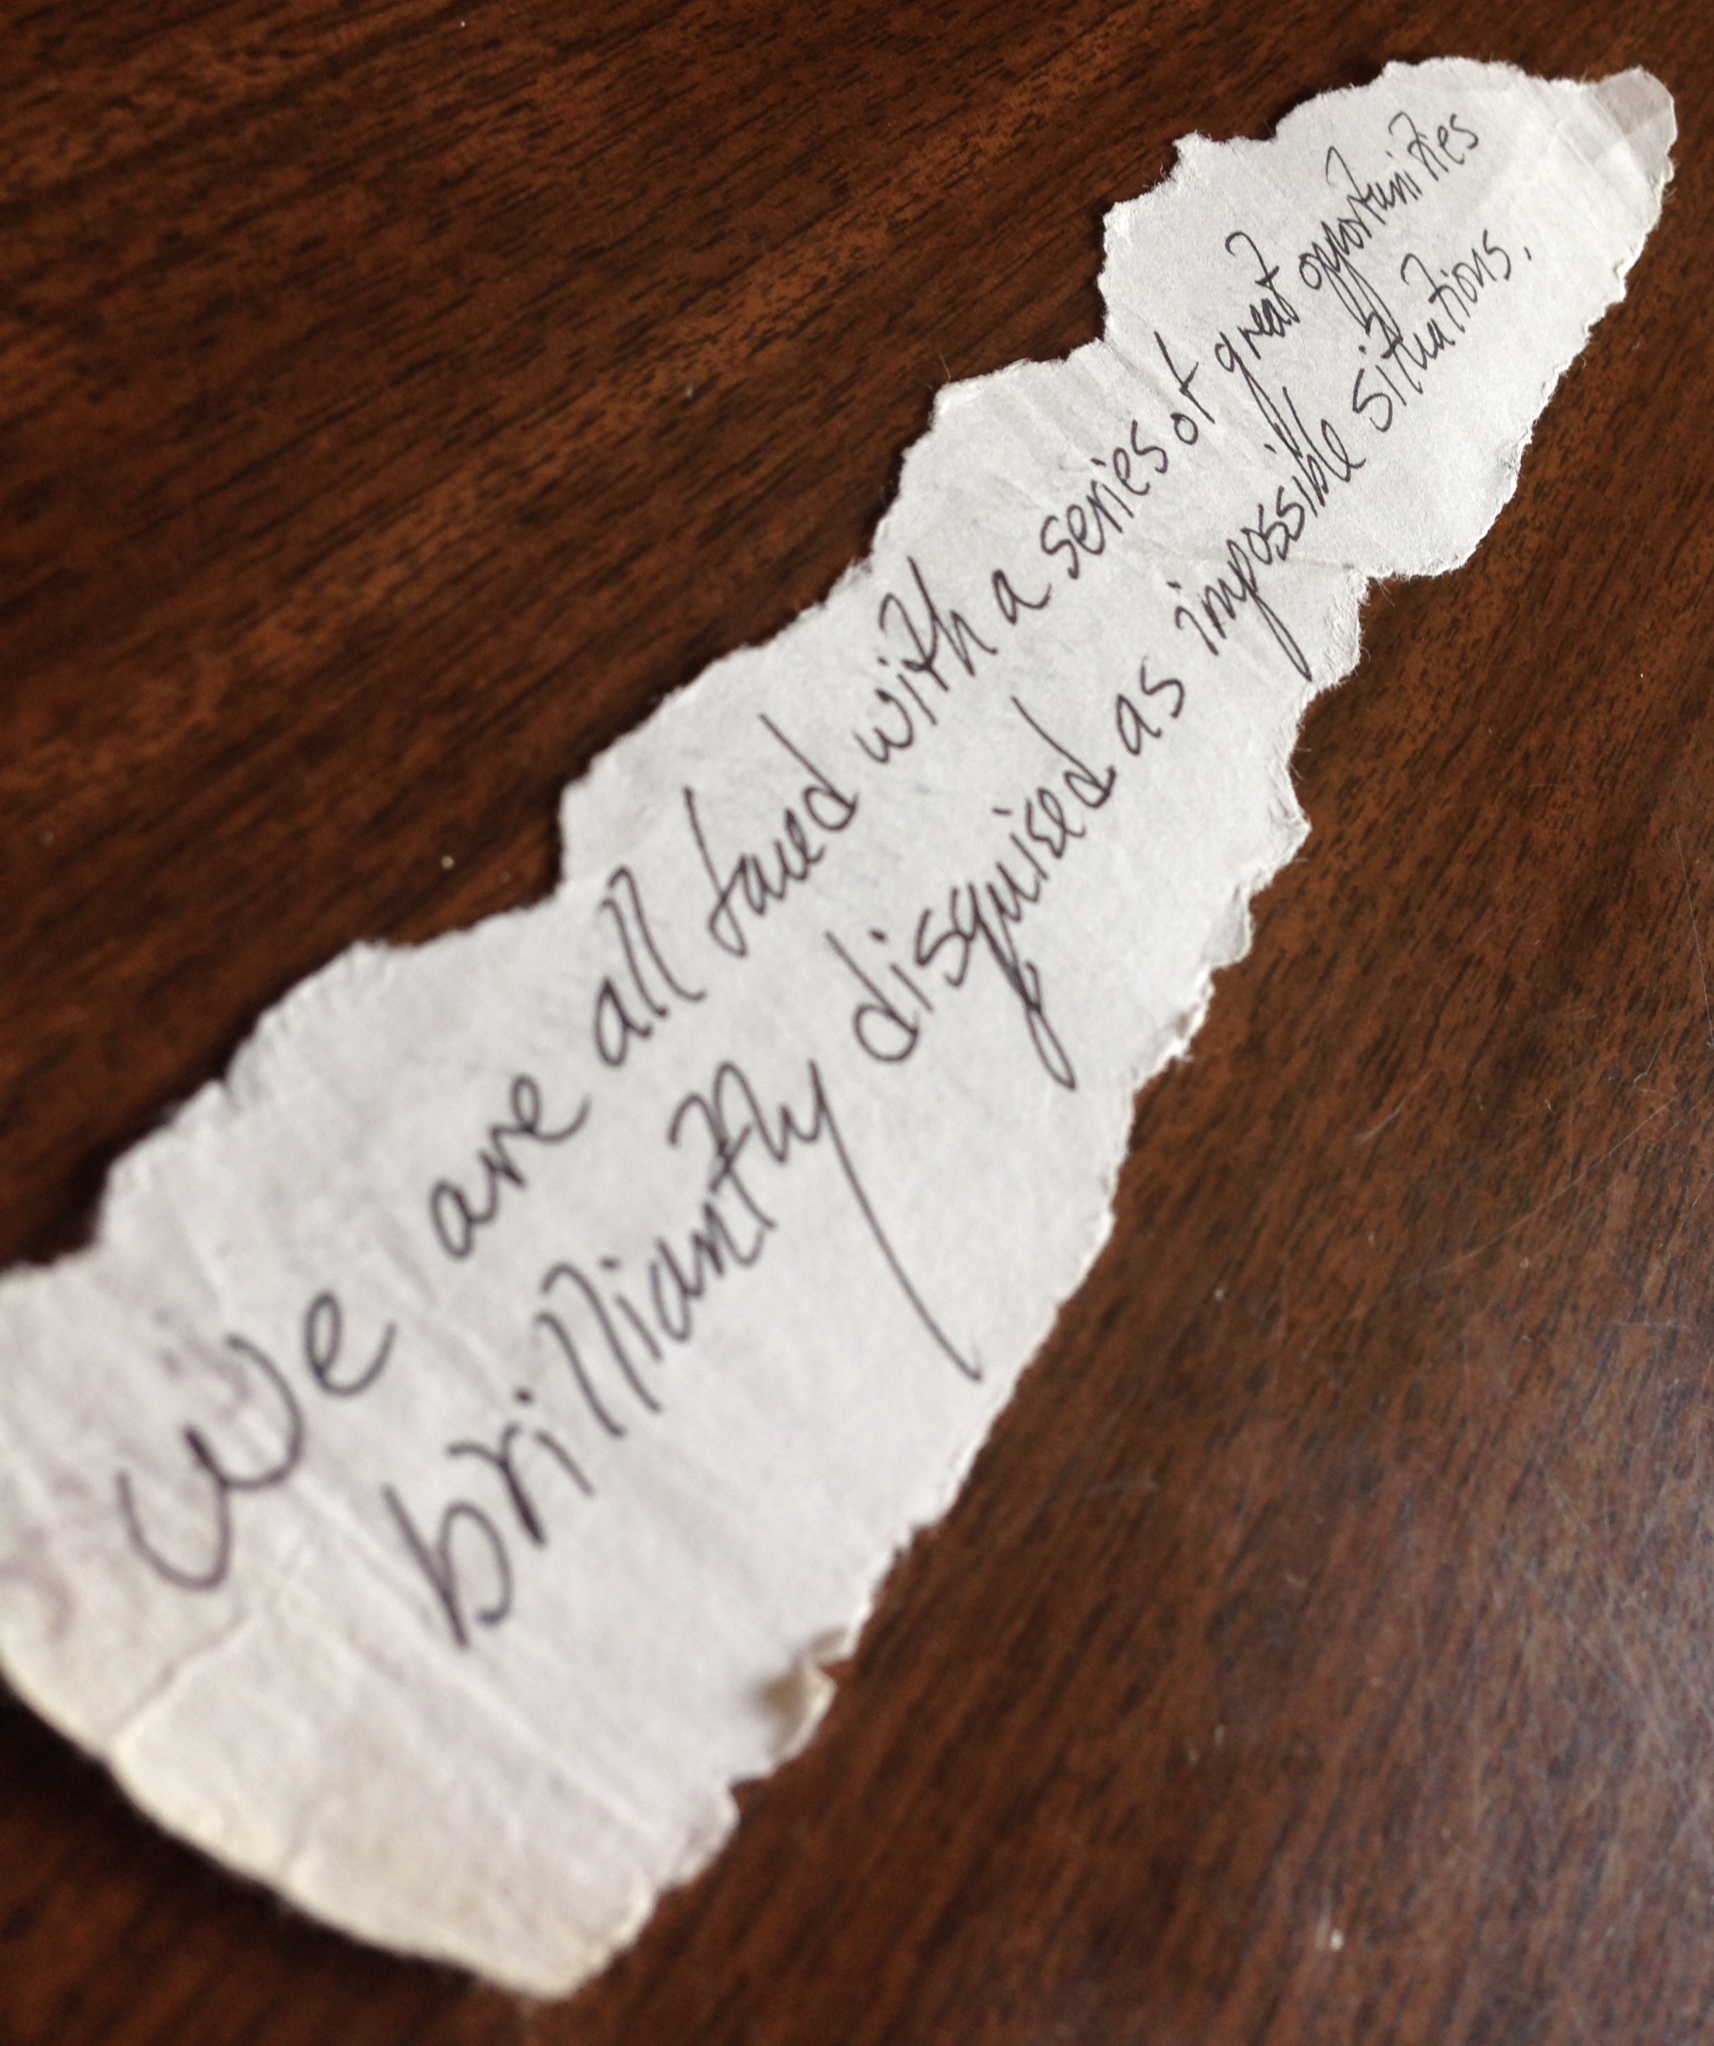 We are all faced with a series of great opportunities
brilliantly disguised as impossible situations.